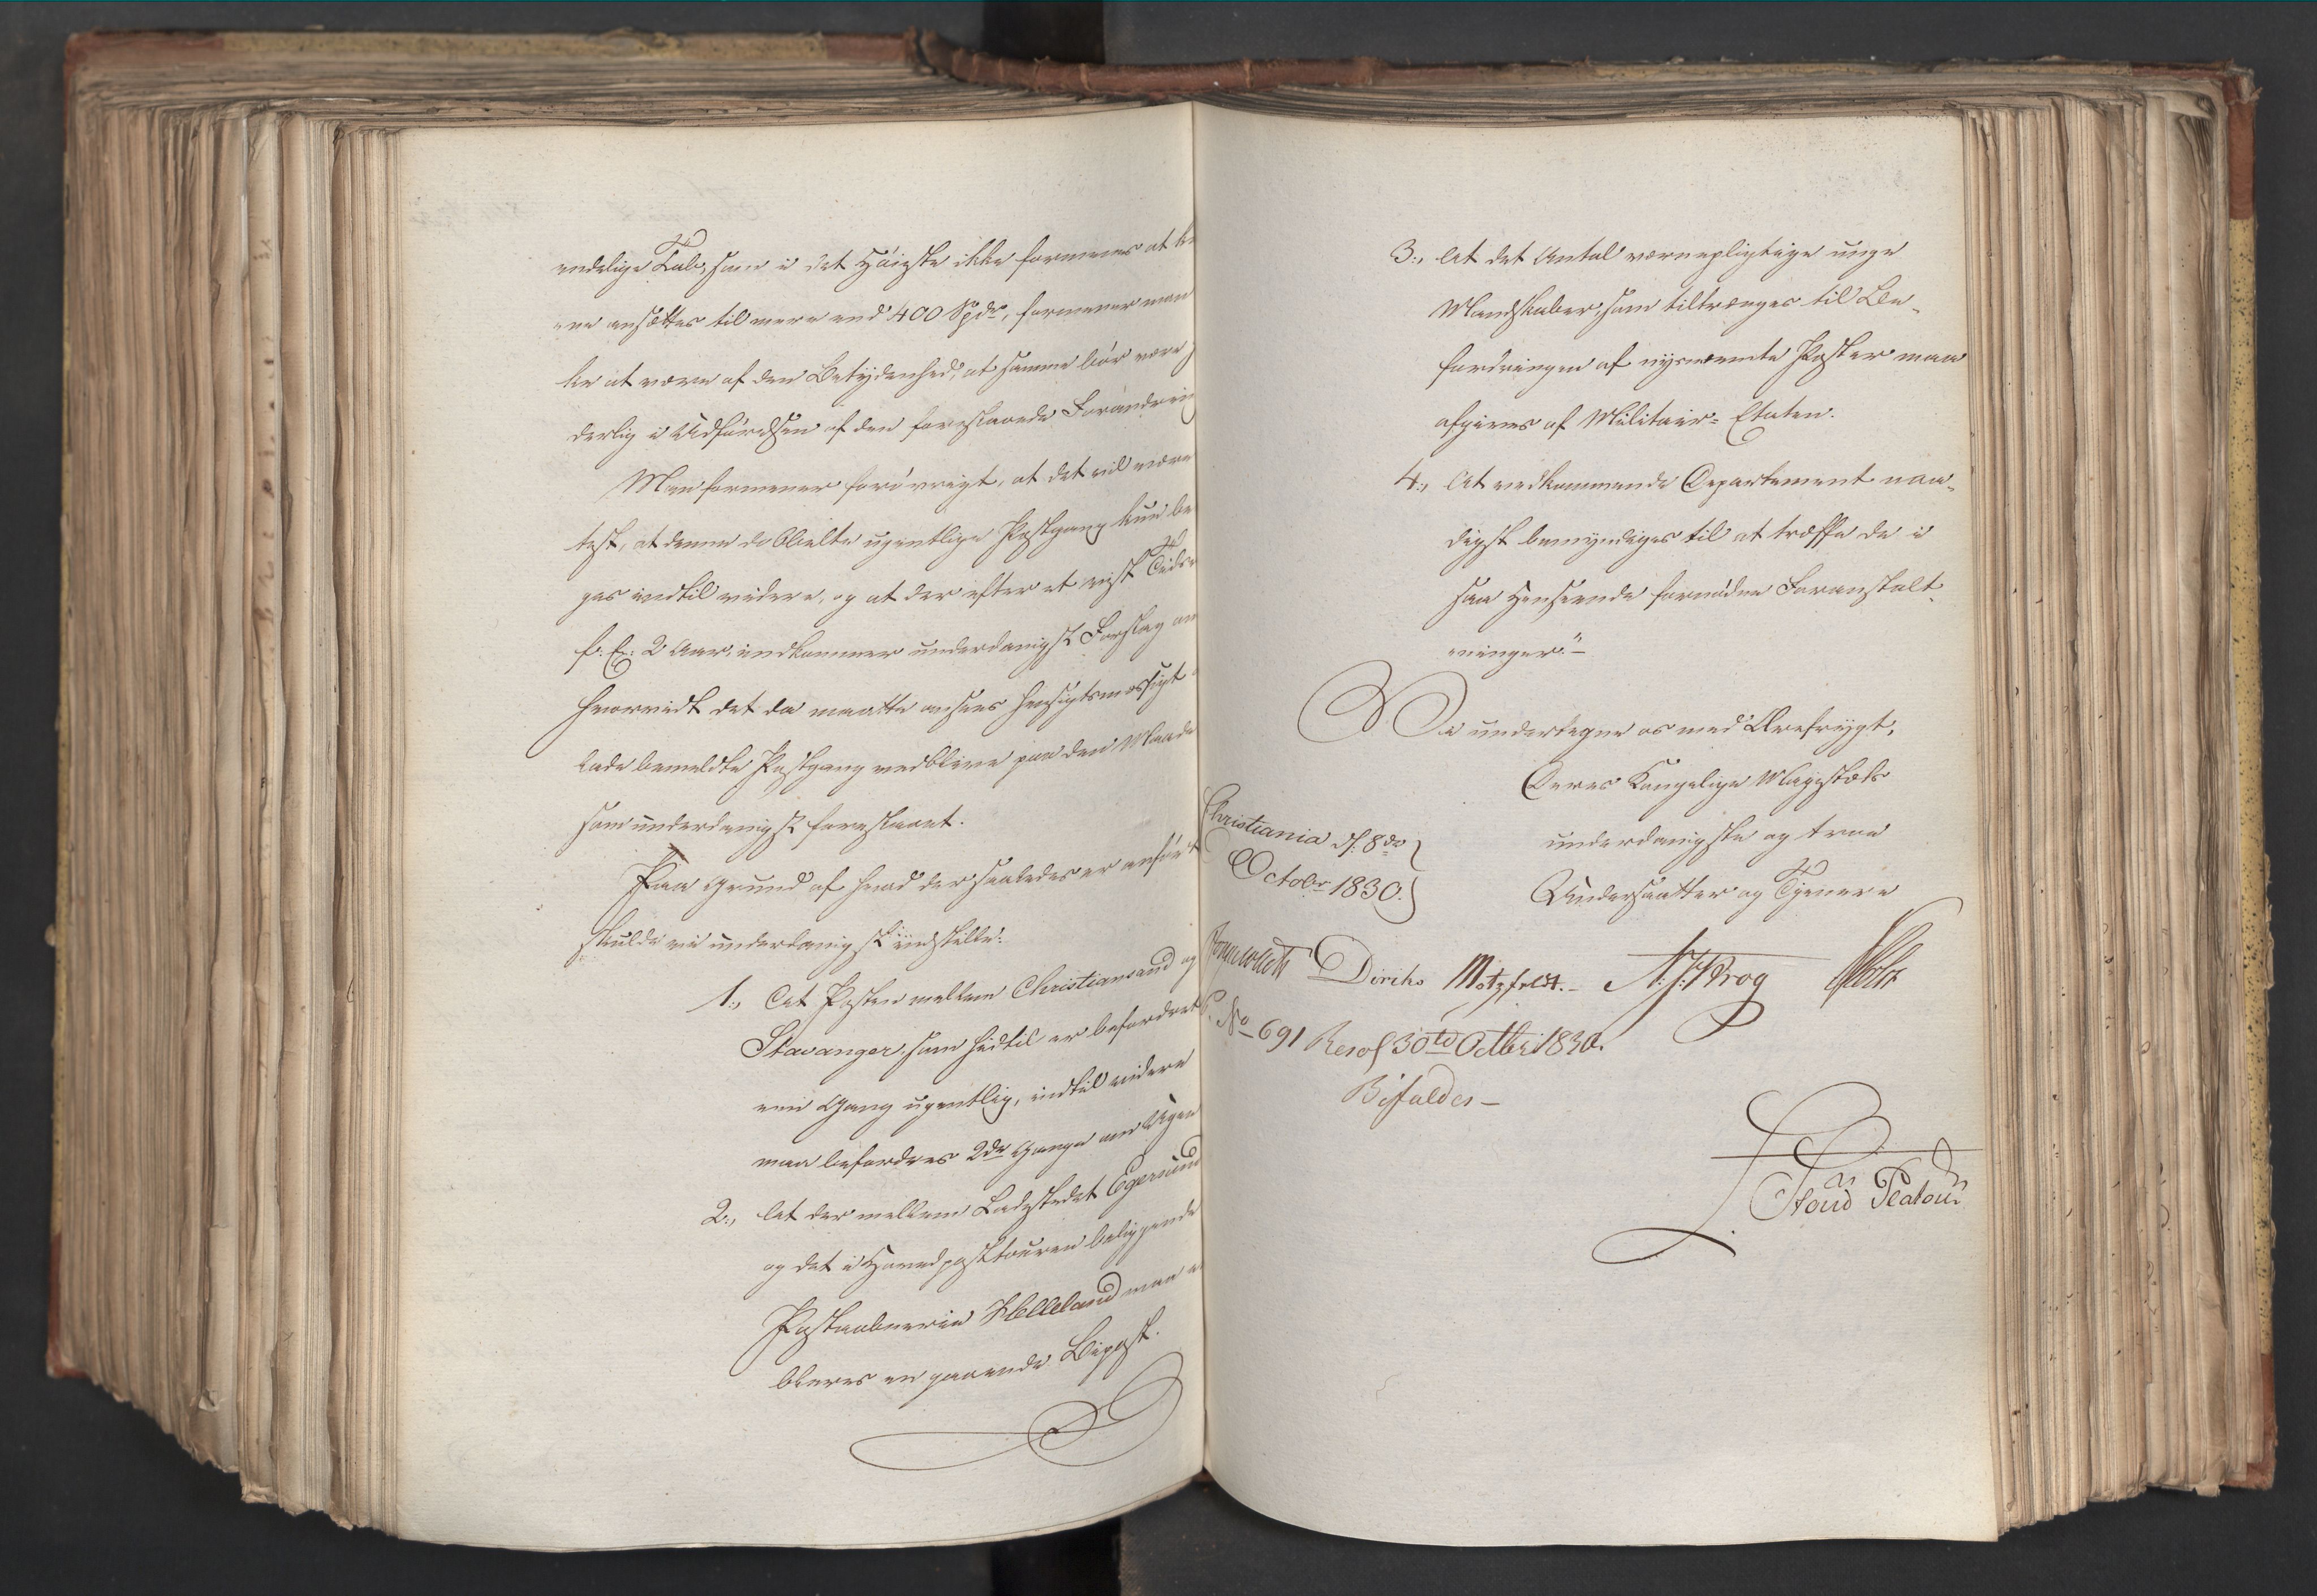 endelige Tab, som i det Høieste ikke formenes at k
ne ansættes til mere end 400 Spdr, formener man
ke at være af den Betydenhed, at samme bør være
derlig i Udførelsen af den foreslaaede Forandrin
Man formener forøvrigt, at det vil være
test, at denne dobbelte ugentlige Postgang kun be
ges indtil videre, og at der efter et vist Tids
f: Ex: 2 Aar, indkommer underdanigst Forslag om
hvorvidt det da maatte ansees hensigtsmæssigt
lade bemeldte Postgang vedblive paa den Maade
som underdanigst foreslaaet.
Paa Grund af hvad der saaledes er anført
skulde vi underdanigst indstille:
1., At Posten mellem Christiansand og
Stavanger, som hidtil er befordret
een Gang ugentlig, indtil videre
maa befordres 2de Gange om Ugen
2., At der mellem Ladestedet Egersund
og det i Hovedposttouren beliggende
Postaabnerie Helleland maa e
bleres en gaaende Bipost.
3., At det Antal værnepligtige unge
Mandskaber, som tiltrænges til Be-
fordringen af nysnævnte Poster maa
afgives af Militair-Etaten.
4., At vedkommende Departement naa-
digst bemyndiges til at træffe de i
saa Henseende fornødne Foranstalt-
ninger."-
Vi undertegne os med Ærefrygt,
Deres Kongelige Majestæts
underdanigste og troe
Undersaatter og Tjenere
Christiania d. 8de
Octobr 1830.
Diriks Motzfeldt.- N. J. Krog
No 691 Resol 30te Octbr 1830.
Bifaldes-